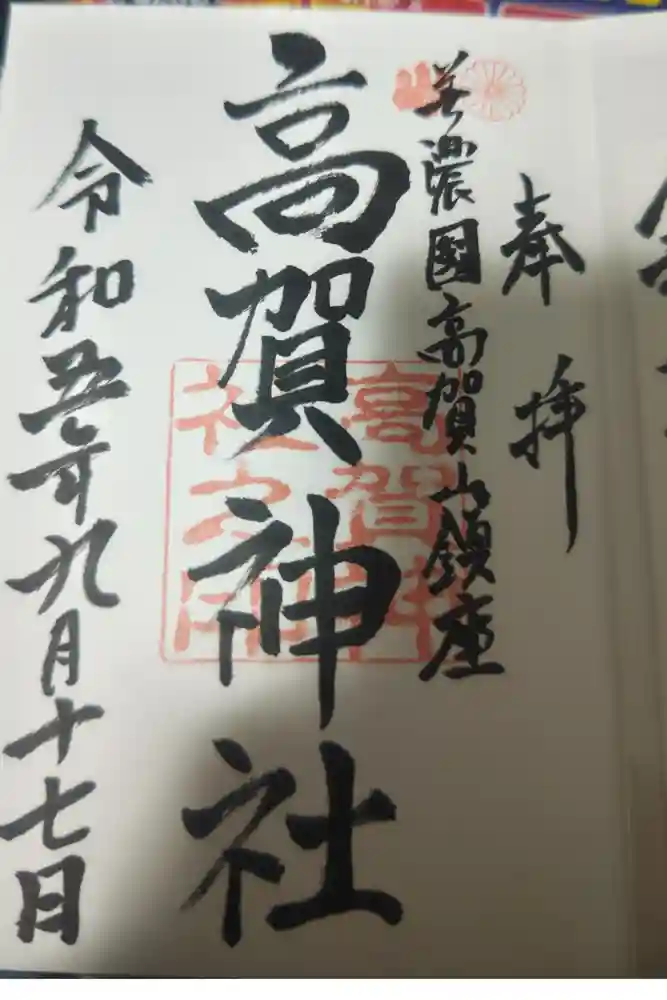 奉拝
美濃國高賀山鎮座
高賀神社
令和五年九月十七日
高賀神社之印